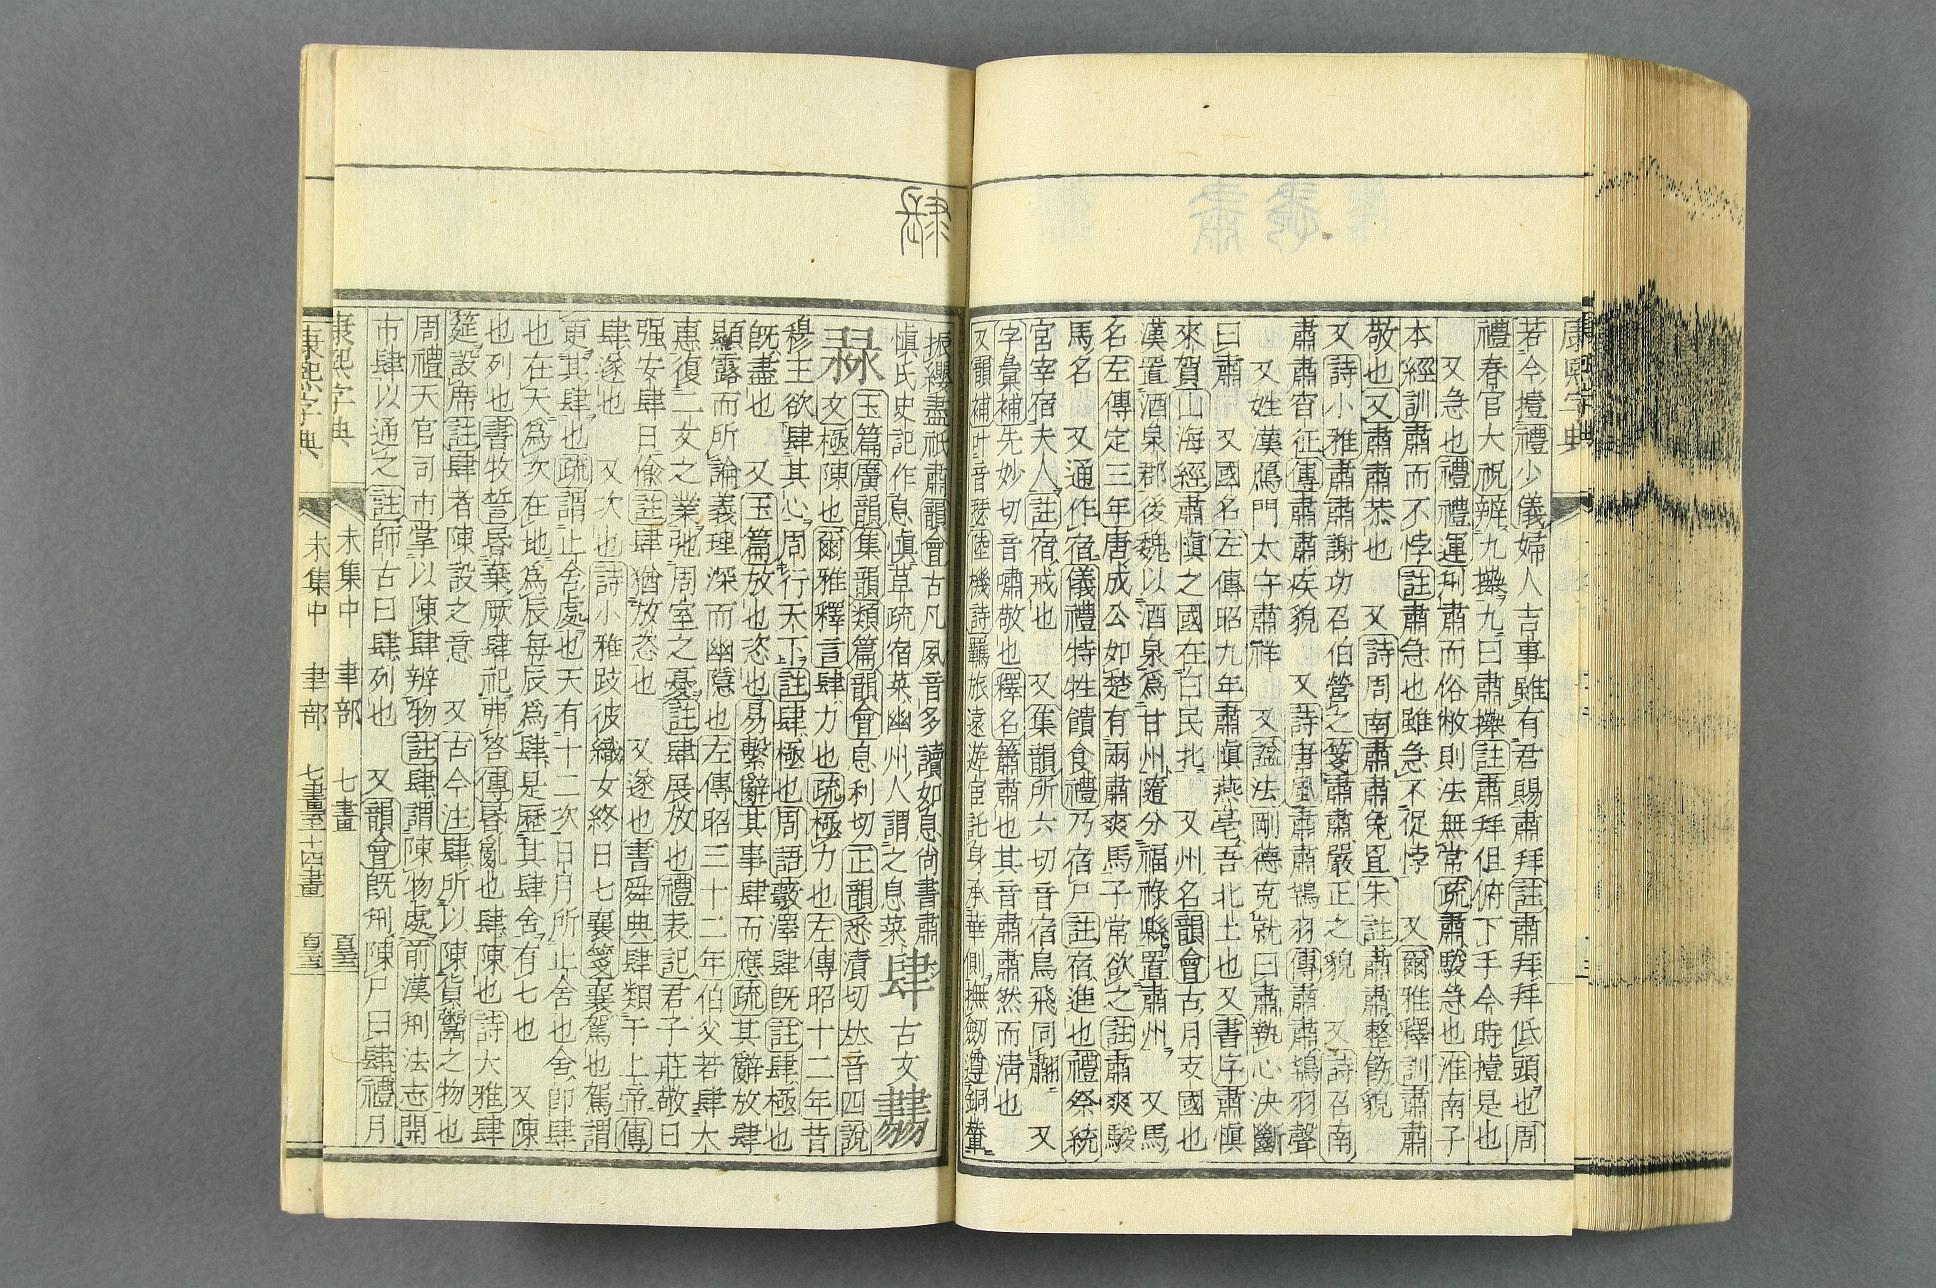 康熙字典
若今擡禮少儀婦人吉事雖有君賜肅拜註肅拜拜低頭也周
禮春官大祝辨九𢷎九曰肅𢷎註肅拜但俯下手今時擡是也
又急也禮禮運刑肅而俗敝則法無常疏肅駿急也淮南子
本經訓肅而不悖註肅急也雖急不促悖 又爾雅釋訓肅肅
敬也又肅肅恭也 又詩周南肅肅兔罝朱註肅肅整飭貌
又詩小雅肅肅謝功召伯營之箋肅肅嚴正之貌 又詩召南
肅肅宵征傳肅肅疾貌 又詩唐風肅肅鴇羽傳肅肅鴇羽聲
又姓漢鴈門太守肅祥 又諡法剛德克就曰肅執心決斷
曰肅 又國名左傳昭九年肅愼燕亳吾北土也又書序肅愼
來賀山海經肅愼之國在白民北 又州名韻會古月支國也
漢置酒泉郡後魏以酒泉爲甘州隨分福祿縣置肅州 又馬
名左傳定三年唐成公如楚有兩肅爽馬子常欲之註肅爽駿
馬名 又通作宿儀禮特牲饋食禮乃宿尸註宿進也禮祭統
宮宰宿夫人註宿戒也 又集韻所六切音宿鳥飛同 又
字彙補先妙切音嘯敬也釋名簫肅也其音肅肅然而淸也
又韻補叶音瑟陸機詩羈旅遠遊宦託身承華側撫劒遵銅輦
肆
振纓盡祇肅韻會古凡夙音多讀如息尚書肅
愼氏史記作息愼草疏宿菜幽州人謂之息菜 肆 古文
玉篇廣韻集韻類篇韻會息利切正韻悉漬切𠀤音四說
文極陳也爾雅釋言肆力也疏極力也左傳昭十二年昔
穆王欲肆其心周行天下註肆極也周語藪澤肆旣註肆極也
旣盡也 又玉篇放也恣也易繫辭其事肆而隱疏其辭放肆
顯露而所論義理深而幽隱也左傳昭三十二年伯父若肆大
惠復二文之業弛周室之憂註肆展放也禮表記君子莊敬日
强安肆日偸註肆猶放恣也 又遂也書舜典肆類于上帝傳
肆遂也 又次也詩小雅跂彼織女終日七襄箋襄駕也駕謂
更其肆也疏謂止舍處也天有十二次日月所止舍也舍卽肆
也在天爲次在地爲辰每辰爲肆是歷其肆舍有七也 又陳
也列也書牧誓昬棄厥肆祀弗答傳昬亂也肆陳也詩大雅肆
筵設席註肆者陳設之意 又古今注肆所以陳貨鬻之物也
周禮天官司市掌以陳肆辨物註肆謂陳物處前漢刑法志開
市肆以通之註師古曰肆列也 又韻會旣刑陳尸曰肆禮月
康熙字典 未集中 聿部 七畫
康熙字典 未集中 聿部 七畫至十四畫